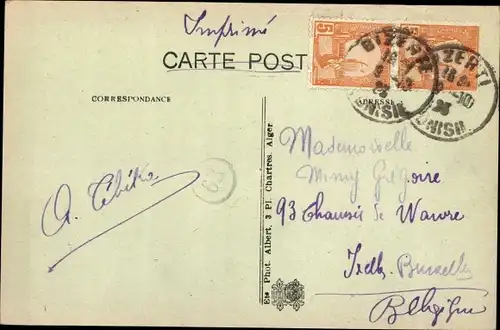 Imprimé
CARTE POST
CORRESPONDANCE
BIZERTE
TUNISIE
BIZERTE
18
TUNISIE
5
Mademoiselle
Mimy Grégoire
93 Chaussée de Wavre
Ixelles Bruxelles
Belgique
Ets Phot. Albert, 3 Pl. Chartres Alger